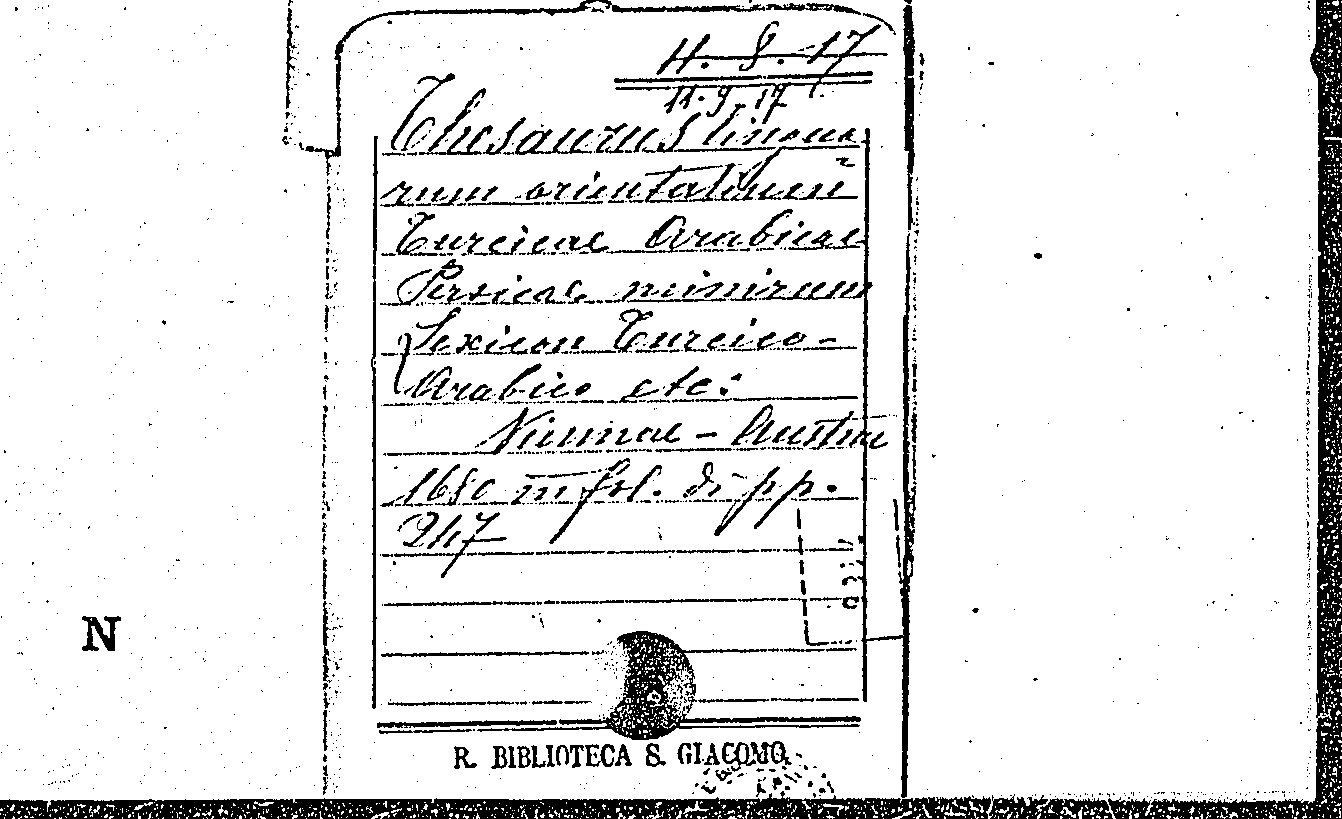 11. 8. 17
11. 9. 17
Thesaurus lingua
rum orientalium
Turcicae Arabicae
Persicae nimirum
Lexicon Turcico-
Arabico etc:
Viennae - Austriae
1680 in fol. di pp.
247
N
R. BIBLIOTECA S. GIACOMO